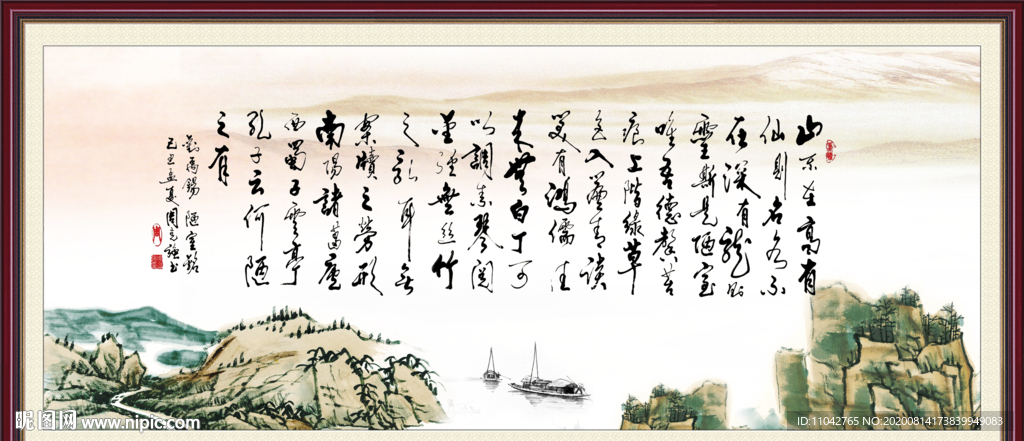 山不在高有
仙則名水不
在深有龍則
靈斯是陋室
唯吾德馨苔
痕上階綠草
色入簾青談
笑有鴻儒往
來無白丁可
以調素琴閱
金經無絲竹
之亂耳無
案牘之勞形
南陽諸葛廬
西蜀子雲亭
孔子云何陋
之有
劉禹錫 陋室銘
孟夏周
昵图网 www.nipic.com
ID:11042765 NO:20200814173839949083